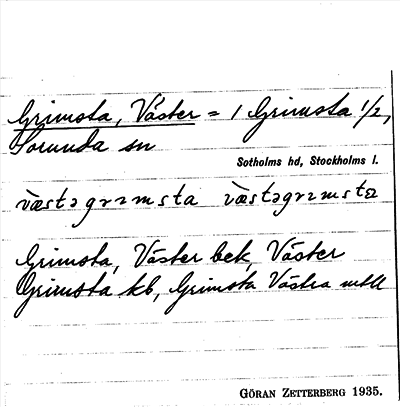 Grimsta, Väster = 1 Grimsta 1/2,
Sorunda sn
Sotholms hd, Stockholms l.
væstəgrɪmsta væstəgrɪmsta
Grimsta, Väster bek, Väster
Grimsta kb, Grimsta Västra mtll
GÖRAN ZETTERBERG 1935.